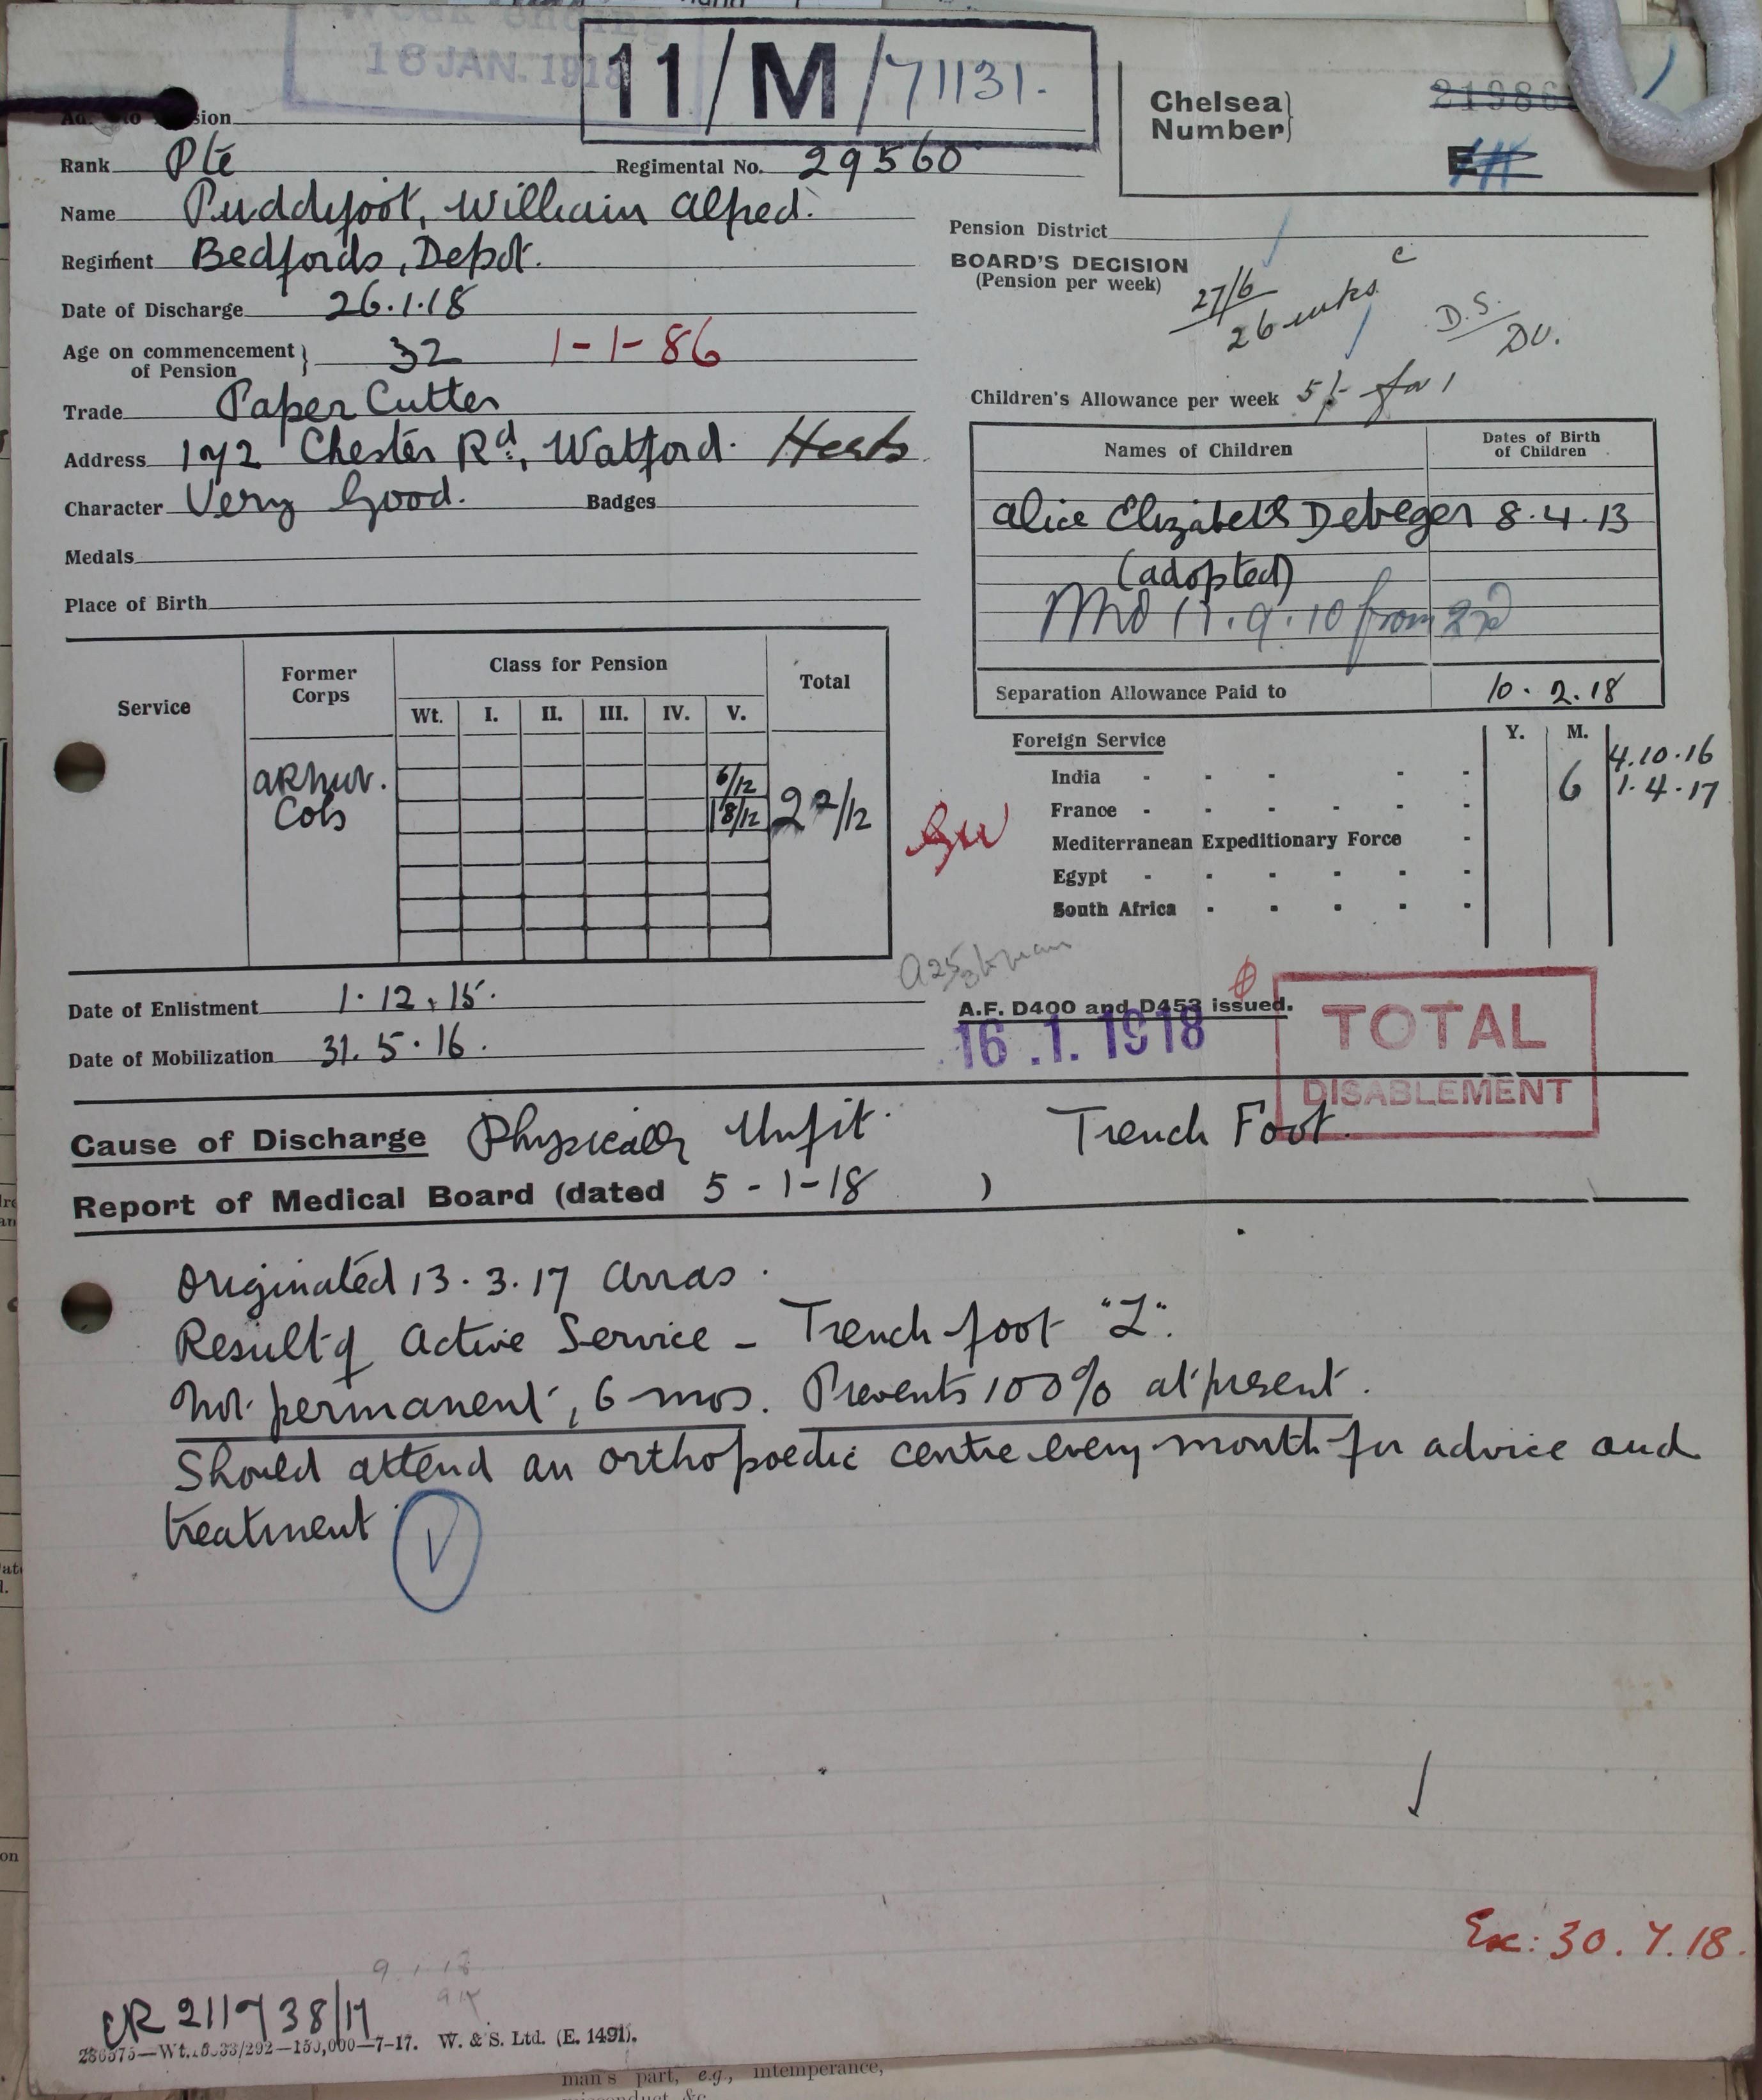 18 JAN. 1918
11/M/71131.
Chelsea Number
Rank Pte Regimental No. 29560
Name Puddyfoot, William Alfred.
Regiment Bedfords, Depot.
Date of Discharge 26.1.18
Age on commencement of Pension 32 1-1-86
Trade Paper Cutter
Address 172 Chester Rd., Watford. Herts
Character Very Good. Badges
Medals
Place of Birth
Pension District
BOARD'S DECISION
(Pension per week)
27/6
26 wks
D.S.
DU.
Children's Allowance per week 5/- for 1
Names of Children Dates of Birth of Children
Alice Elizabeth Debeger 8.4.13
(adopted)
Separation Allowance Paid to 10.2.18
Service Former Corps Class for Pension Total
Wt. I. II. III. IV. V.
6/12
Cols 18/12
Foreign Service Y. M.
India - - - - -
4.10.16
6 1.4.17
France - - - - -
Mediterranean Expeditionary Force -
Egypt - - - - -
South Africa - - - - -
Date of Enlistment 1.12.15.
Date of Mobilization 31.5.16.
A.F. D400 and D453 issued.
16.1.1918
TOTAL
DISABLEMENT
Cause of Discharge Physically Unfit. Trench Foot.
Report of Medical Board (dated 5-1-18 )
Originated 13.3.17 Arras.
Result of Active Service - Trench foot "L".
Not permanent, 6 mos. Prevents 100% at present.
Should attend an orthopoedic centre every month for advice and
treatment
V
Ex: 30.7.18.
W. & S. Ltd. (E. 1491).
man's part, e.g., intemperance,